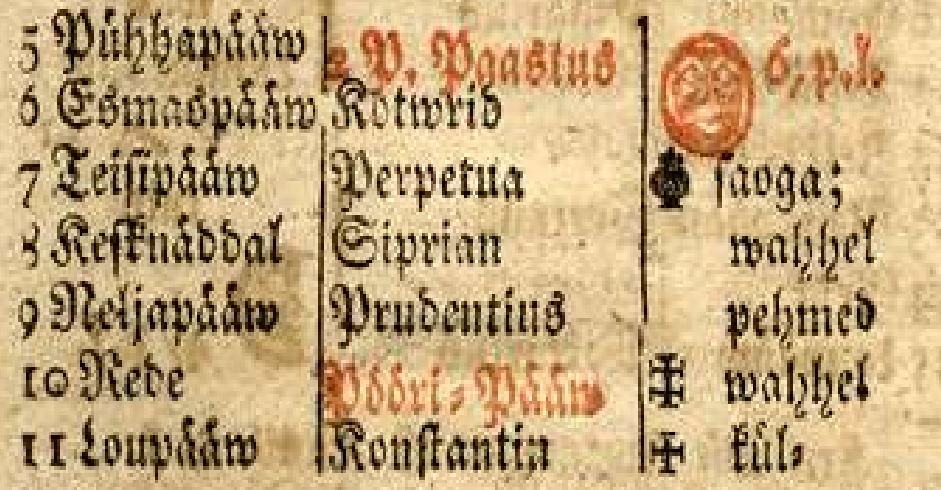 5 Pühhapääw 2 P. Paastus 6, p. l.
6 Esmaspääw Kotwrid
7 Teisipääw Perpetua saoga;
8 Kesknäddal Siprian wahhel
9 Neljapääw Prudentius pehmed
10 Rede Pööri-Pääw wahhel
11 Loupääw Konstantin kül-